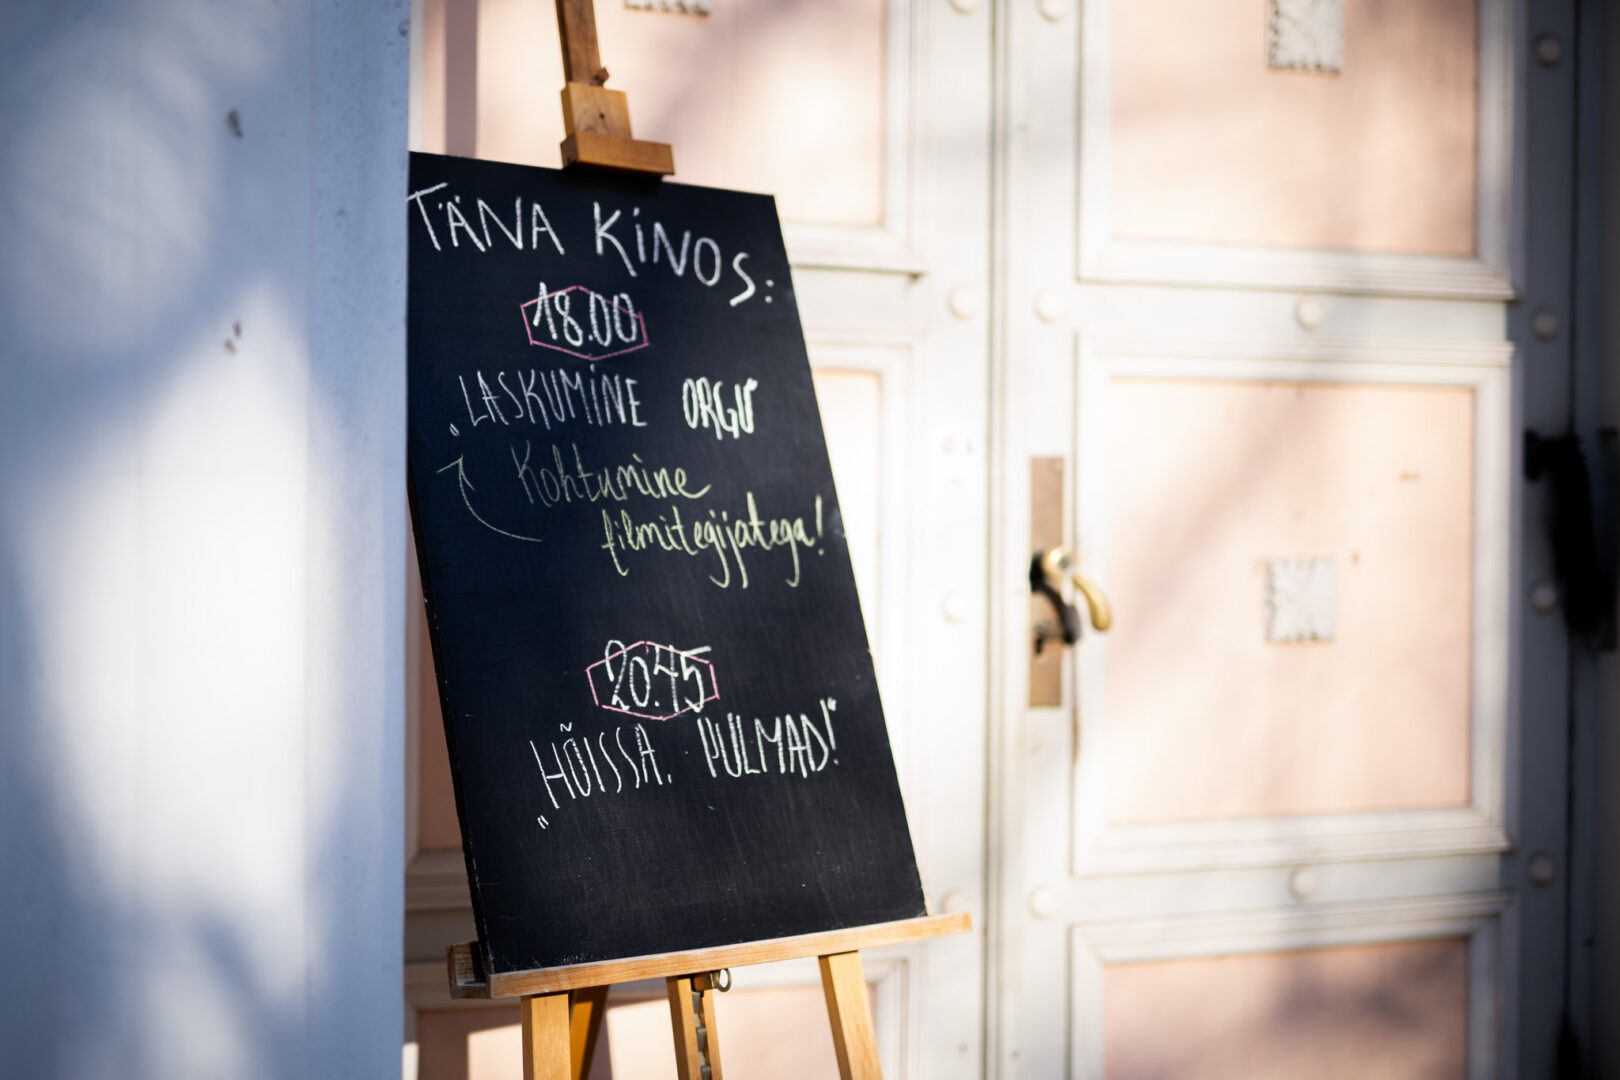 TÄNA KINOS:
18.00
„LASKUMINE ORGU“
Kohtumine
filmitegijatega!
20.45
„HÕISSA, PULMAD!“